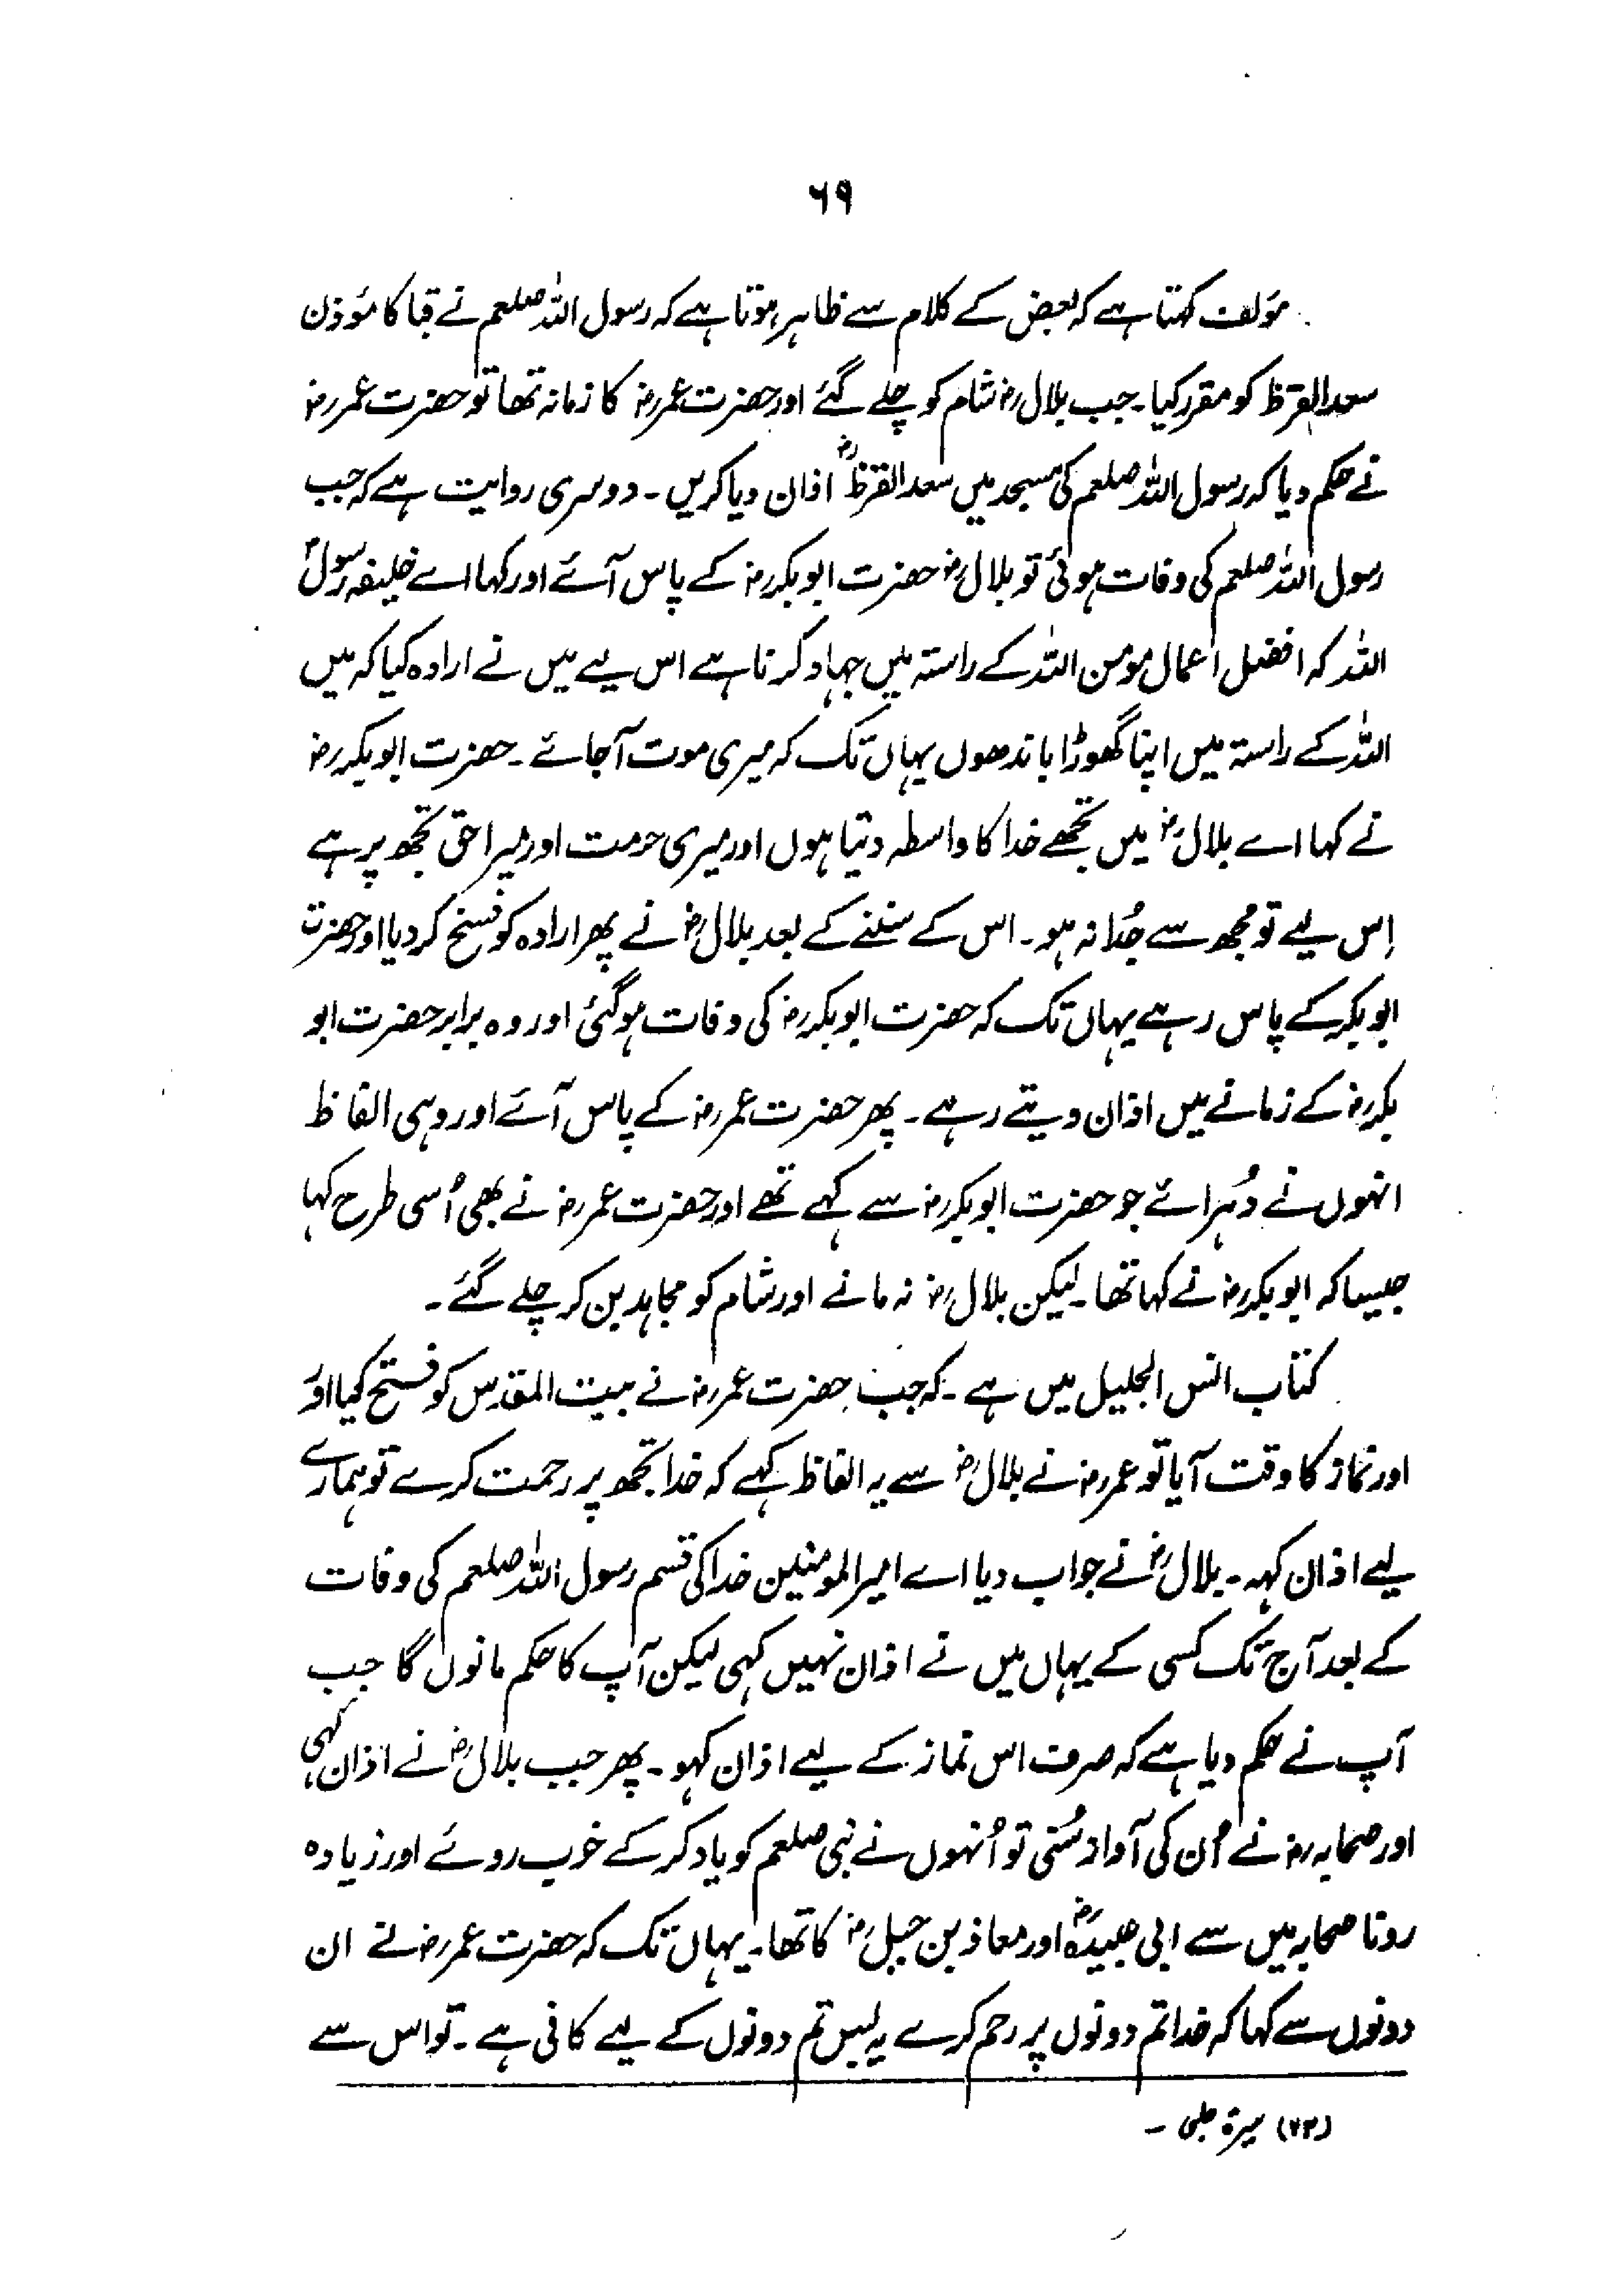 ۶۹
مؤلف کہتا ہے کہ بعض کے کلام سے ظاہر ہوتا ہے کہ رسول اللہ صلعم نے قبا کا مؤذن
سعد القرظ کو مقرر کیا۔ جب بلالؓ شام کو چلے گئے اور حضرت عمرؓ کا زمانہ تھا تو حضرت عمرؓ
نے حکم دیا کہ رسول اللہ صلعم کی مسجد میں سعد القرظؓ اذان دیا کریں۔ دوسری روایت ہے کہ جب
رسول اللہ صلعم کی وفات ہوئی تو بلالؓ حضرت ابوبکرؓ کے پاس آئے اور کہا اے خلیفہ رسول
اللہ کہ افضل اعمال مومن اللہ کے راستہ میں جہاد کرنا ہے اس لیے میں نے ارادہ کیا کہ میں
اللہ کے راستہ میں اپنا گھوڑا باندھوں یہاں تک کہ میری موت آجائے۔ حضرت ابوبکرؓ
نے کہا اے بلالؓ میں تجھے خدا کا واسطہ دیتا ہوں اور میری حرمت اور میرا حق تجھ پر ہے
اِس لیے تو مجھ سے جُدا نہ ہو۔ اس کے سننے کے بعد بلالؓ نے پھر ارادہ کو فسخ کر دیا اور حضرت
ابوبکر کے پاس رہے یہاں تک کہ حضرت ابوبکرؓ کی وفات ہوگئی اور وہ برابر حضرت ابو
بکرؓ کے زمانے میں اذان دیتے رہے۔ پھر حضرت عمرؓ کے پاس آئے اور وہی الفاظ
انہوں نے دُہرائے جو حضرت ابوبکرؓ سے کہے تھے اور حضرت عمرؓ نے بھی اُسی طرح کہا
جیسا کہ ابوبکرؓ نے کہا تھا۔ لیکن بلالؓ نہ مانے اور شام کو مجاہد بن کر چلے گئے۔
کتاب انس الجلیل میں ہے۔ کہ جب حضرت عمرؓ نے بیت المقدس کو فتح کیا اور
اور نماز کا وقت آیا تو عمرؓ نے بلالؓ سے یہ الفاظ کہے کہ خدا تجھ پر رحمت کرے تو ہمارے
لیے اذان کہہ۔ بلالؓ نے جواب دیا اے امیر المومنین خدا کی قسم رسول اللہ صلعم کی وفات
کے بعد آج تک کسی کے یہاں میں نے اذان نہیں کہی لیکن آپ کا حکم مانوں گا جب
آپ نے حکم دیا ہے کہ صرف اس نماز کے لیے اذان کہو۔ پھر جب بلالؓ نے اذان کہی
اور صحابہؓ نے اُن کی آواز سُنی تو اُنہوں نے نبی صلعم کو یاد کرکے خوب روئے اور زیادہ
رونا صحابہ میں سے ابی عبیدہؓ اور معاذ بن جبلؓ کا تھا۔ یہاں تک کہ حضرت عمرؓ نے ان
دونوں سے کہا کہ خدا تم دونوں پر رحم کرے یہ بس تم دونوں کے لیے کافی ہے۔ تو اس سے
سیرۃ حلبی۔